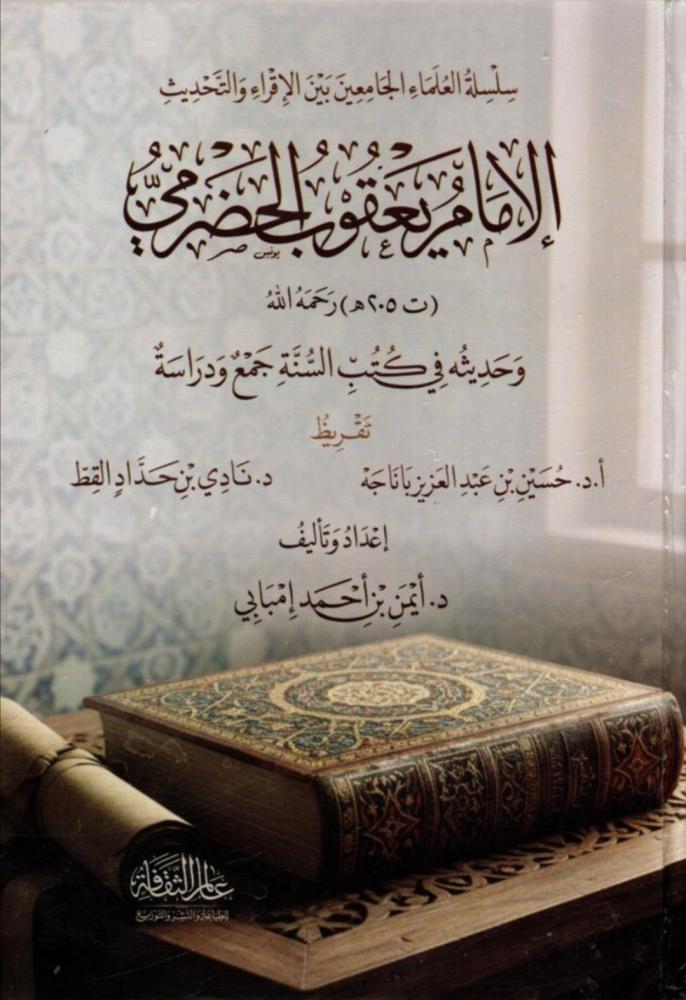 سِلْسِلَةُ العُلَمَاءِ الجَامِعِينَ بَيْنَ الإِقْرَاءِ وَالتَّحْدِيثِ
الإِمَامُ يَعْقُوبُ الحَضْرَمِيُّ
يونس
(ت ٢٠٥هـ) رَحِمَهُ اللهُ
وَحَدِيثُه فِي كُتُبِ السُّنَّةِ جَمْعٌ وَدِرَاسَةٌ
تَقْرِيظُ
أ.د. حُسَيْنِ بْنِ عَبْدِ العَزِيزِ بَانَاجَهْ د. نَادِي بْنِ حَدَّادِ القِطّ
إِعْدَادُ وَتَأْلِيفُ
د. أَيْمَنِ بْنِ أَحْمَد إِمْبَابِي
عالم الثقافة
للطباعة والنشر والتوزيع